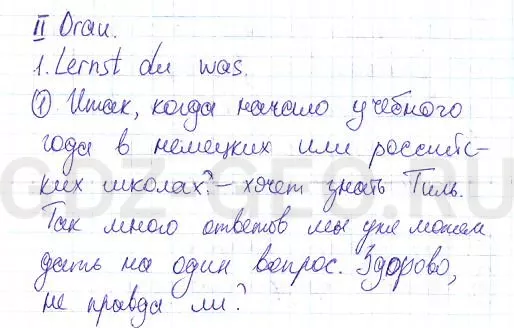 II Dran.
1. Lernst du was.
① Итак, когда начало учебного
года в немецких или российс-
ких школах? – хочет знать Тиль.
Так много ответов мы уже можем
дать на один вопрос. Здорово,
не правда ли?
GDZ-GEO.RU